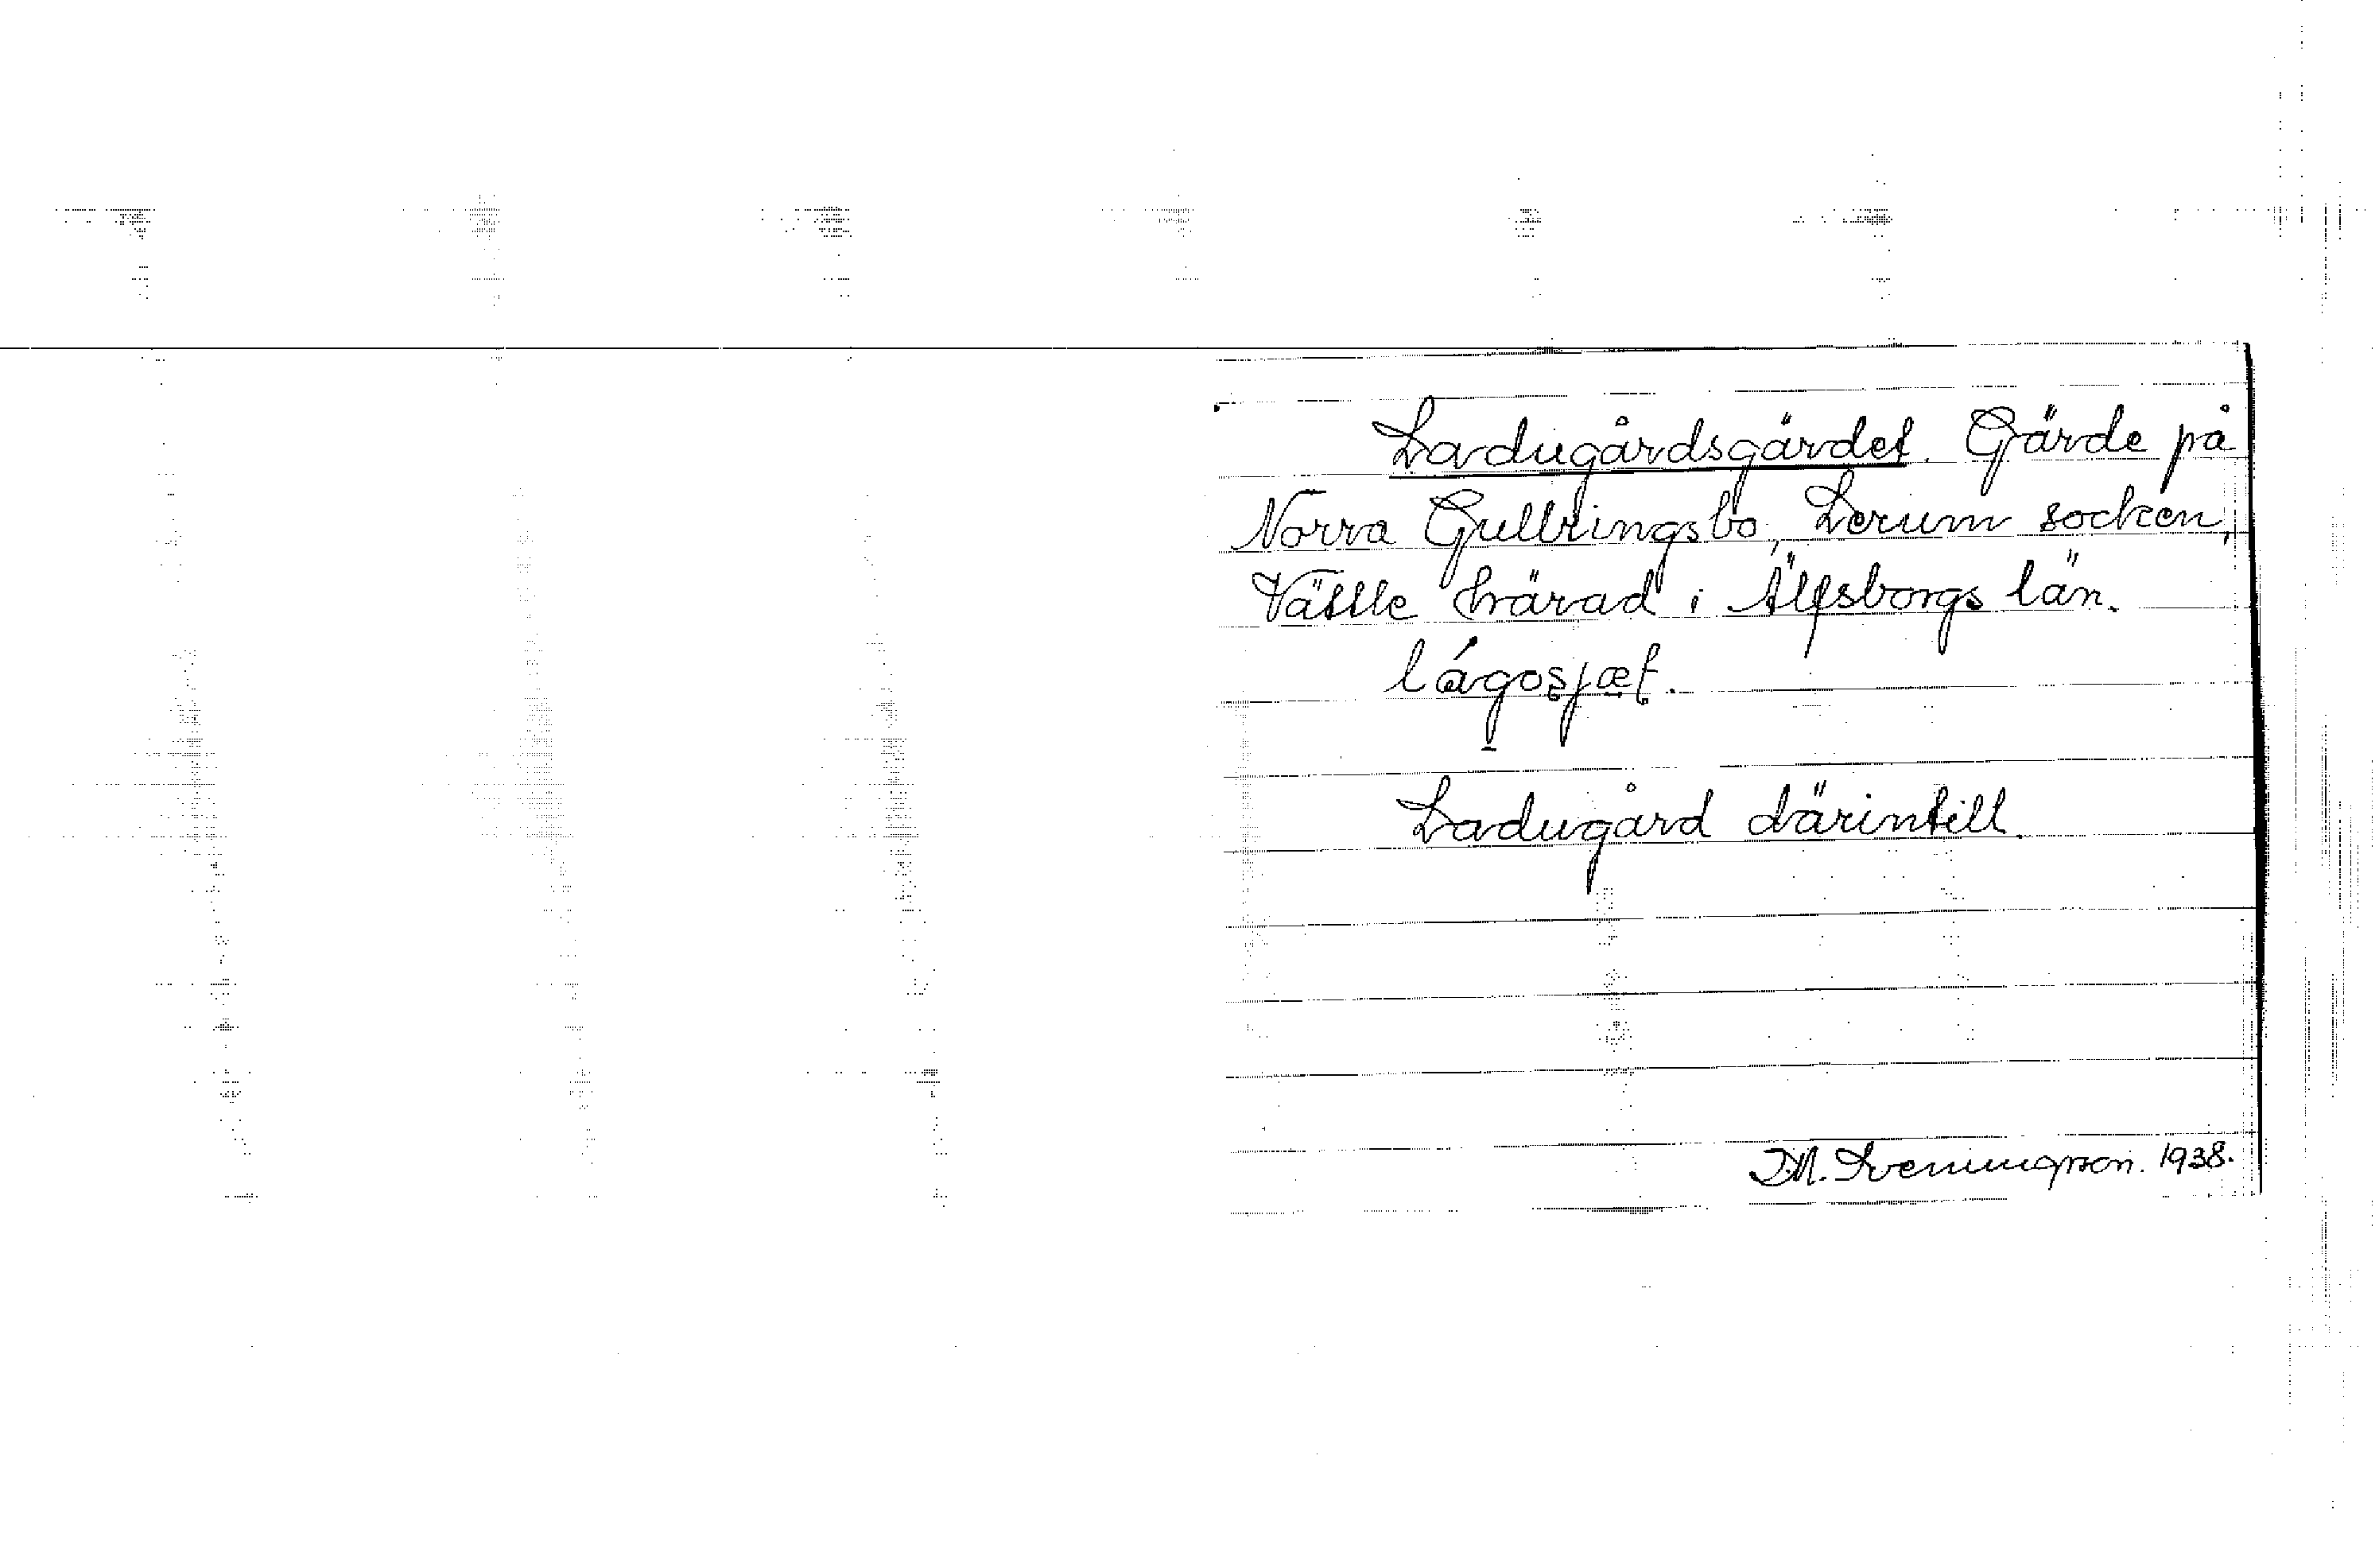 Ladugårdsgärdet. Gärde på
Norra Gullringsbo, Lerum socken,
Vättle härad i Älfsborgs län.
lágosjæt.
Ladugård därintill.
J.M. Sveningson. 1938.